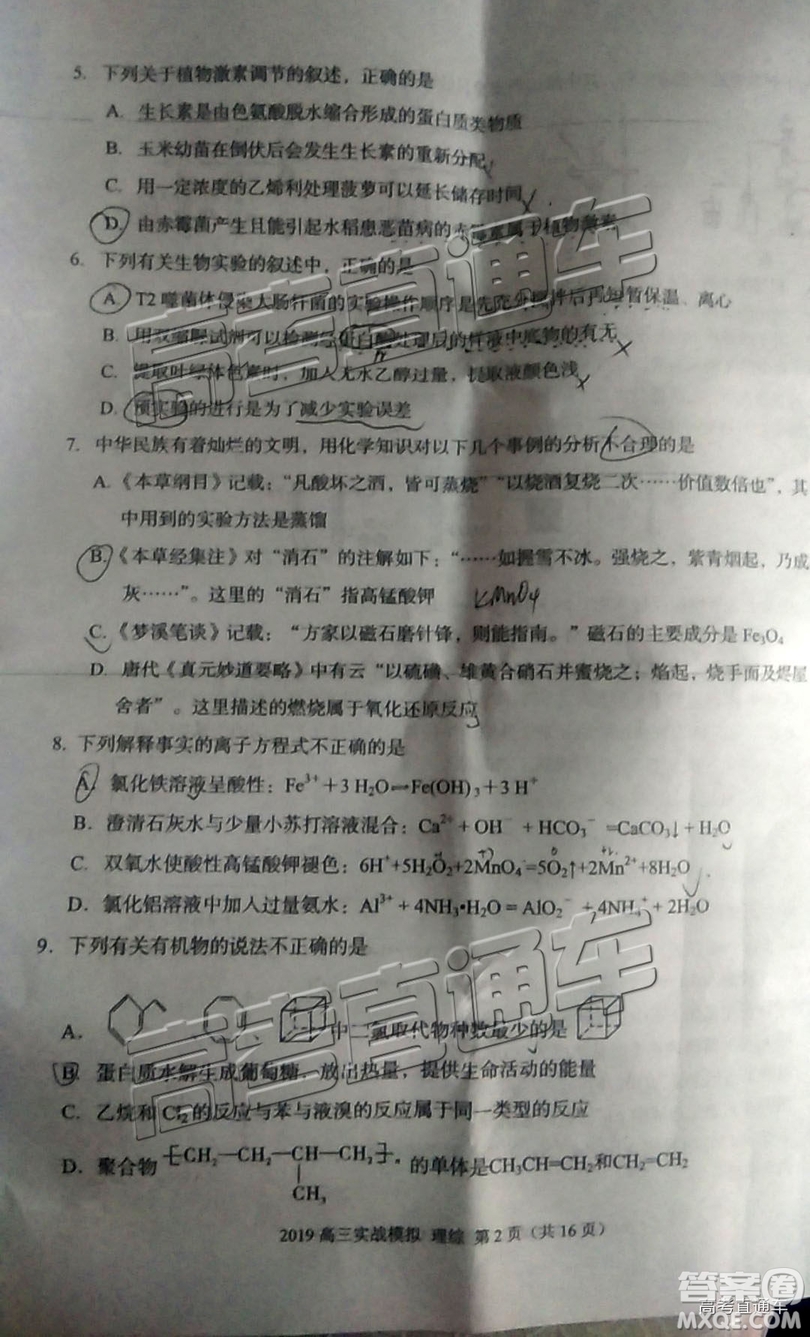 5. 下列关于植物激素调节的叙述，正确的是
A. 生长素是由色氨酸脱水缩合形成的蛋白质类物质
B. 玉米幼苗在倒伏后会发生生长素的重新分配
C. 用一定浓度的乙烯利处理菠萝可以延长储存时间
D. 由赤霉菌产生且能引起水稻患恶苗病的赤霉素属于植物激素
6. 下列有关生物实验的叙述中，正确的是
A. T2 噬菌体侵染大肠杆菌的实验操作顺序是先充分搅拌后再短暂保温、离心
B. 用双缩脲试剂可以检测经蛋白酶处理后的 液中底物的有无
C. 提取叶绿体色素时，加入无水乙醇过量，提取液颜色浅
D. 预实验的进行是为了减少实验误差
7. 中华民族有着灿烂的文明，用化学知识对以下几个事例的分析不合理的是
A.《本草纲目》记载：“凡酸坏之酒，皆可蒸烧”“以烧酒复烧二次……价值数倍也”，其
中用到的实验方法是蒸馏
B.《本草经集注》对“消石”的注解如下：“……如握雪不冰。强烧之，紫青烟起，乃成
灰……”。这里的“消石”指高锰酸钾 KMnO4
C.《梦溪笔谈》记载：“方家以磁石磨针锋，则能指南。”磁石的主要成分是 Fe₃O₄
D. 唐代《真元妙道要略》中有云“以硫磺、雄黄合硝石并蜜烧之；焰起，烧手面及烬屋
舍者”。这里描述的燃烧属于氧化还原反应
8. 下列解释事实的离子方程式不正确的是
A. 氯化铁溶液呈酸性：Fe³⁺＋3 H₂O⇌Fe(OH)₃＋3 H⁺
B. 澄清石灰水与少量小苏打溶液混合：Ca²⁺ + OH⁻ + HCO₃⁻ =CaCO₃↓ + H₂O
C. 双氧水使酸性高锰酸钾褪色：6H⁺+5H₂O₂+2MnO₄⁻=5O₂↑+2Mn²⁺+8H₂O
D. 氯化铝溶液中加入过量氨水：Al³⁺ + 4NH₃•H₂O = AlO₂⁻ + 4NH₄⁺ + 2H₂O
9. 下列有关有机物的说法不正确的是
A. 中二氯取代物种数最少的是
B. 蛋白质水解生成葡萄糖，放出热量，提供生命活动的能量
C. 乙烷和 Cl₂ 的反应与苯与液溴的反应属于同一类型的反应
D. 聚合物 ⁅CH₂—CH₂—CH—CH₂⁆ₙ 的单体是CH₃CH=CH₂和CH₂=CH₂
CH₃
2019 高三实战模拟 理综 第 2 页（共 16 页）
高考直通车
高考直通车
答案圈
高考直通车
MXQE.COM